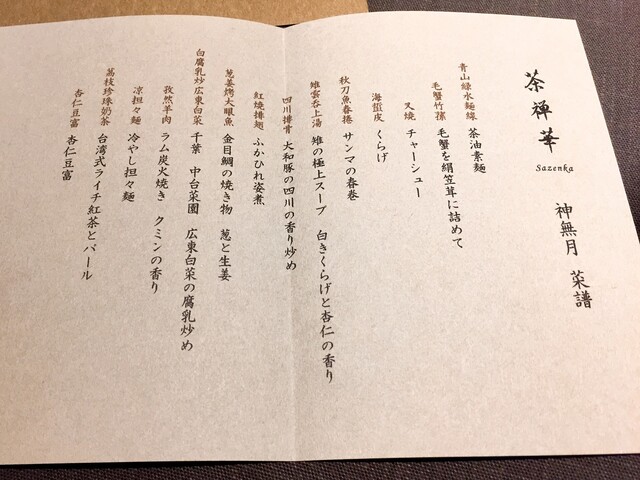 茶禅華
Sazenka
神無月 菜譜
青山緑水麺線 茶油素麺
毛蟹竹蓀 毛蟹を絹笠茸に詰めて
叉焼 チャーシュー
海蜇皮 くらげ
秋刀魚春捲 サンマの春巻
雉雲呑上湯 雉の極上スープ 白きくらげと杏仁の香り
四川排骨 大和豚の四川の香り炒め
紅焼排翅 ふかひれ姿煮
葱姜烤大眼魚 金目鯛の焼き物 葱と生姜
白腐乳炒広東白菜 千葉 中台菜園 広東白菜の腐乳炒め
孜然羊肉 ラム炭火焼き クミンの香り
凉担々麺 冷やし担々麺
茘枝珍珠奶茶 台湾式ライチ紅茶とパール
杏仁豆富 杏仁豆富